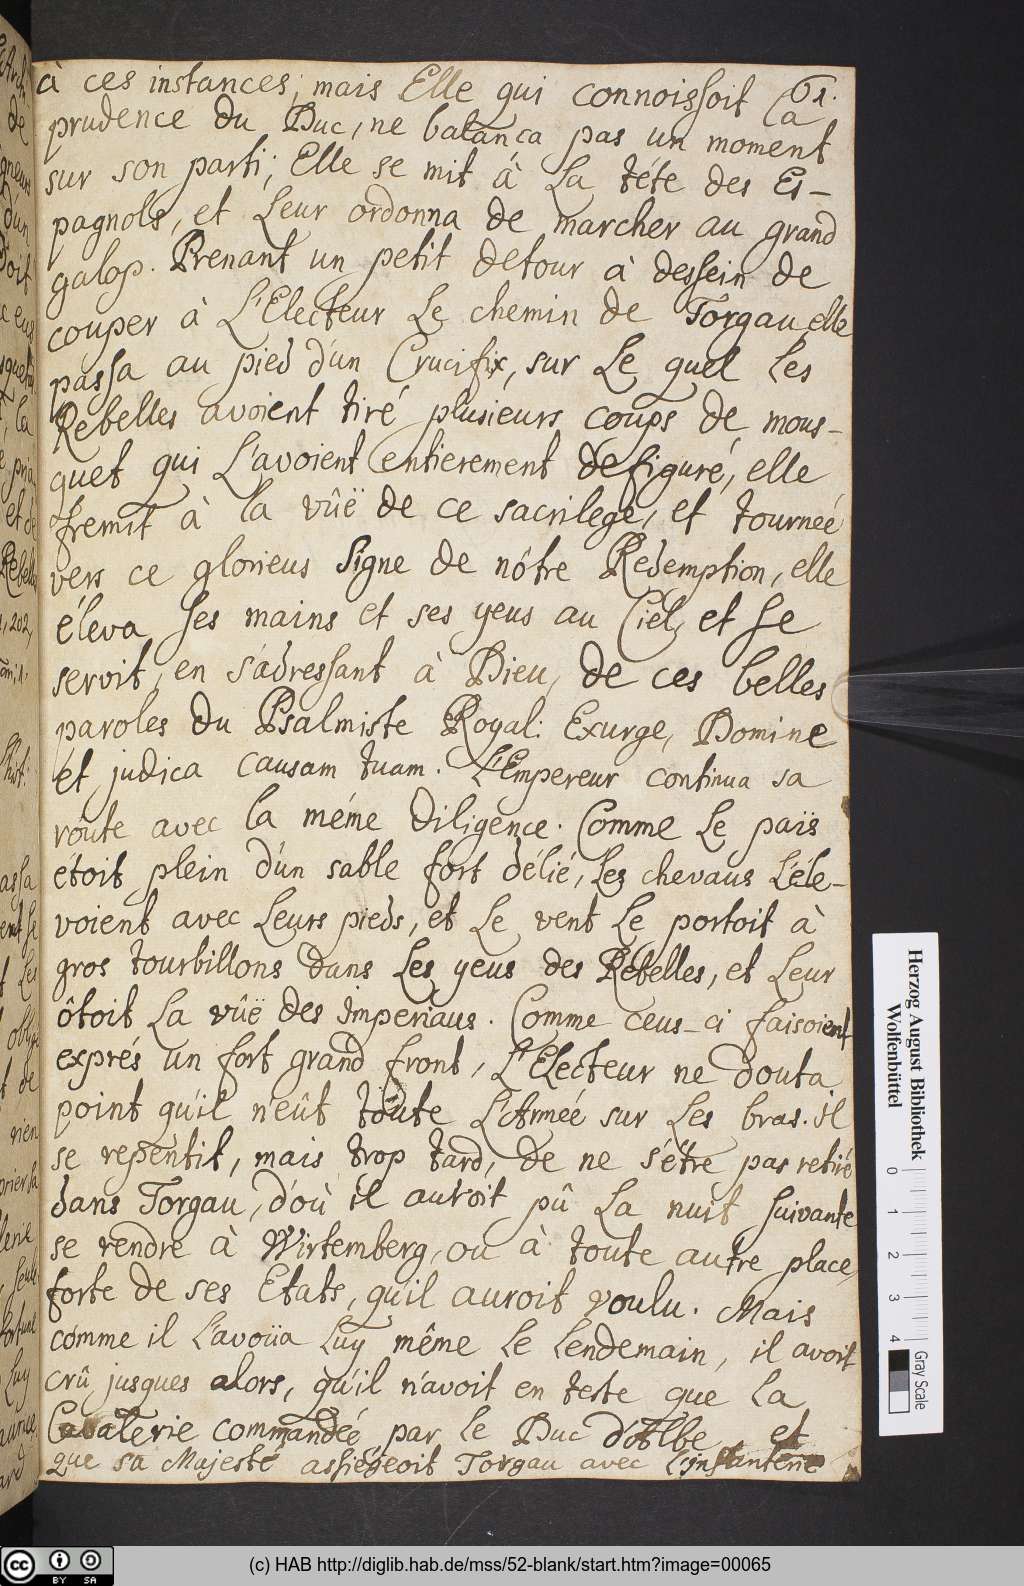 61.
à ces instances; mais Elle qui connoissoit la
prudence du Duc, ne balança pas un moment
sur son parti; Elle se mit à La téte des Es-
pagnols, et Leur ordonna de marcher au grand
galop. Prenant un petit detour à dessein de
couper à L'Electeur Le chemin de Torgau elle
passa au pied d'un Crucifix, sur Le quel les
Rebelles avoient tiré plusieurs coups de mous-
quet qui L'avoient entierement defiguré, elle
fremit à la vûë de ce sacrilege, et tourneé
vers ce glorieus signe de nôtre Redemption, elle
éleva ses mains et ses yeus au Ciel, et se
servit, en s'adressant à Dieu, de ces belles
paroles du Psalmiste Royal: Exurge, Domine
et judica causam tuam. L'Empereur continua sa
route avec la méme Diligence. Comme Le païs
étoit plein d'un sable fort délié, Les chevaus L'éle-
voient avec Leurs pieds, et Le vent Le portoit à
gros tourbillons dans Les yeus des Rebelles, et Leur
ôtoit La vûë des Imperiaus. Comme ceus-ci faisoient
exprés un fort grand front, L'Electeur ne douta
point qu'il n'eût toute L'Armeé sur Les bras. il
se repentit, mais trop tard, de ne s'étre pas retiré
dans Torgau, d'où il auroit pû La nuit suivante
se rendre à Wirtemberg, ou à toute autre place
forte de ses Etats, qu'il auroit voulu. Mais
comme il L'avoüa Luy même Le Lendemain, il avoit
crû jusques alors, qu'il n'avoit en teste que La
Cavalerie commandeé par Le Duc d'Albe et
que sa Majesté assiégeoit Torgau avec L'infanterie
Herzog August Bibliothek
Wolfenbüttel
0 1 2 3 4
Gray Scale
cc BY SA
(c) HAB http://diglib.hab.de/mss/52-blank/start.htm?image=00065